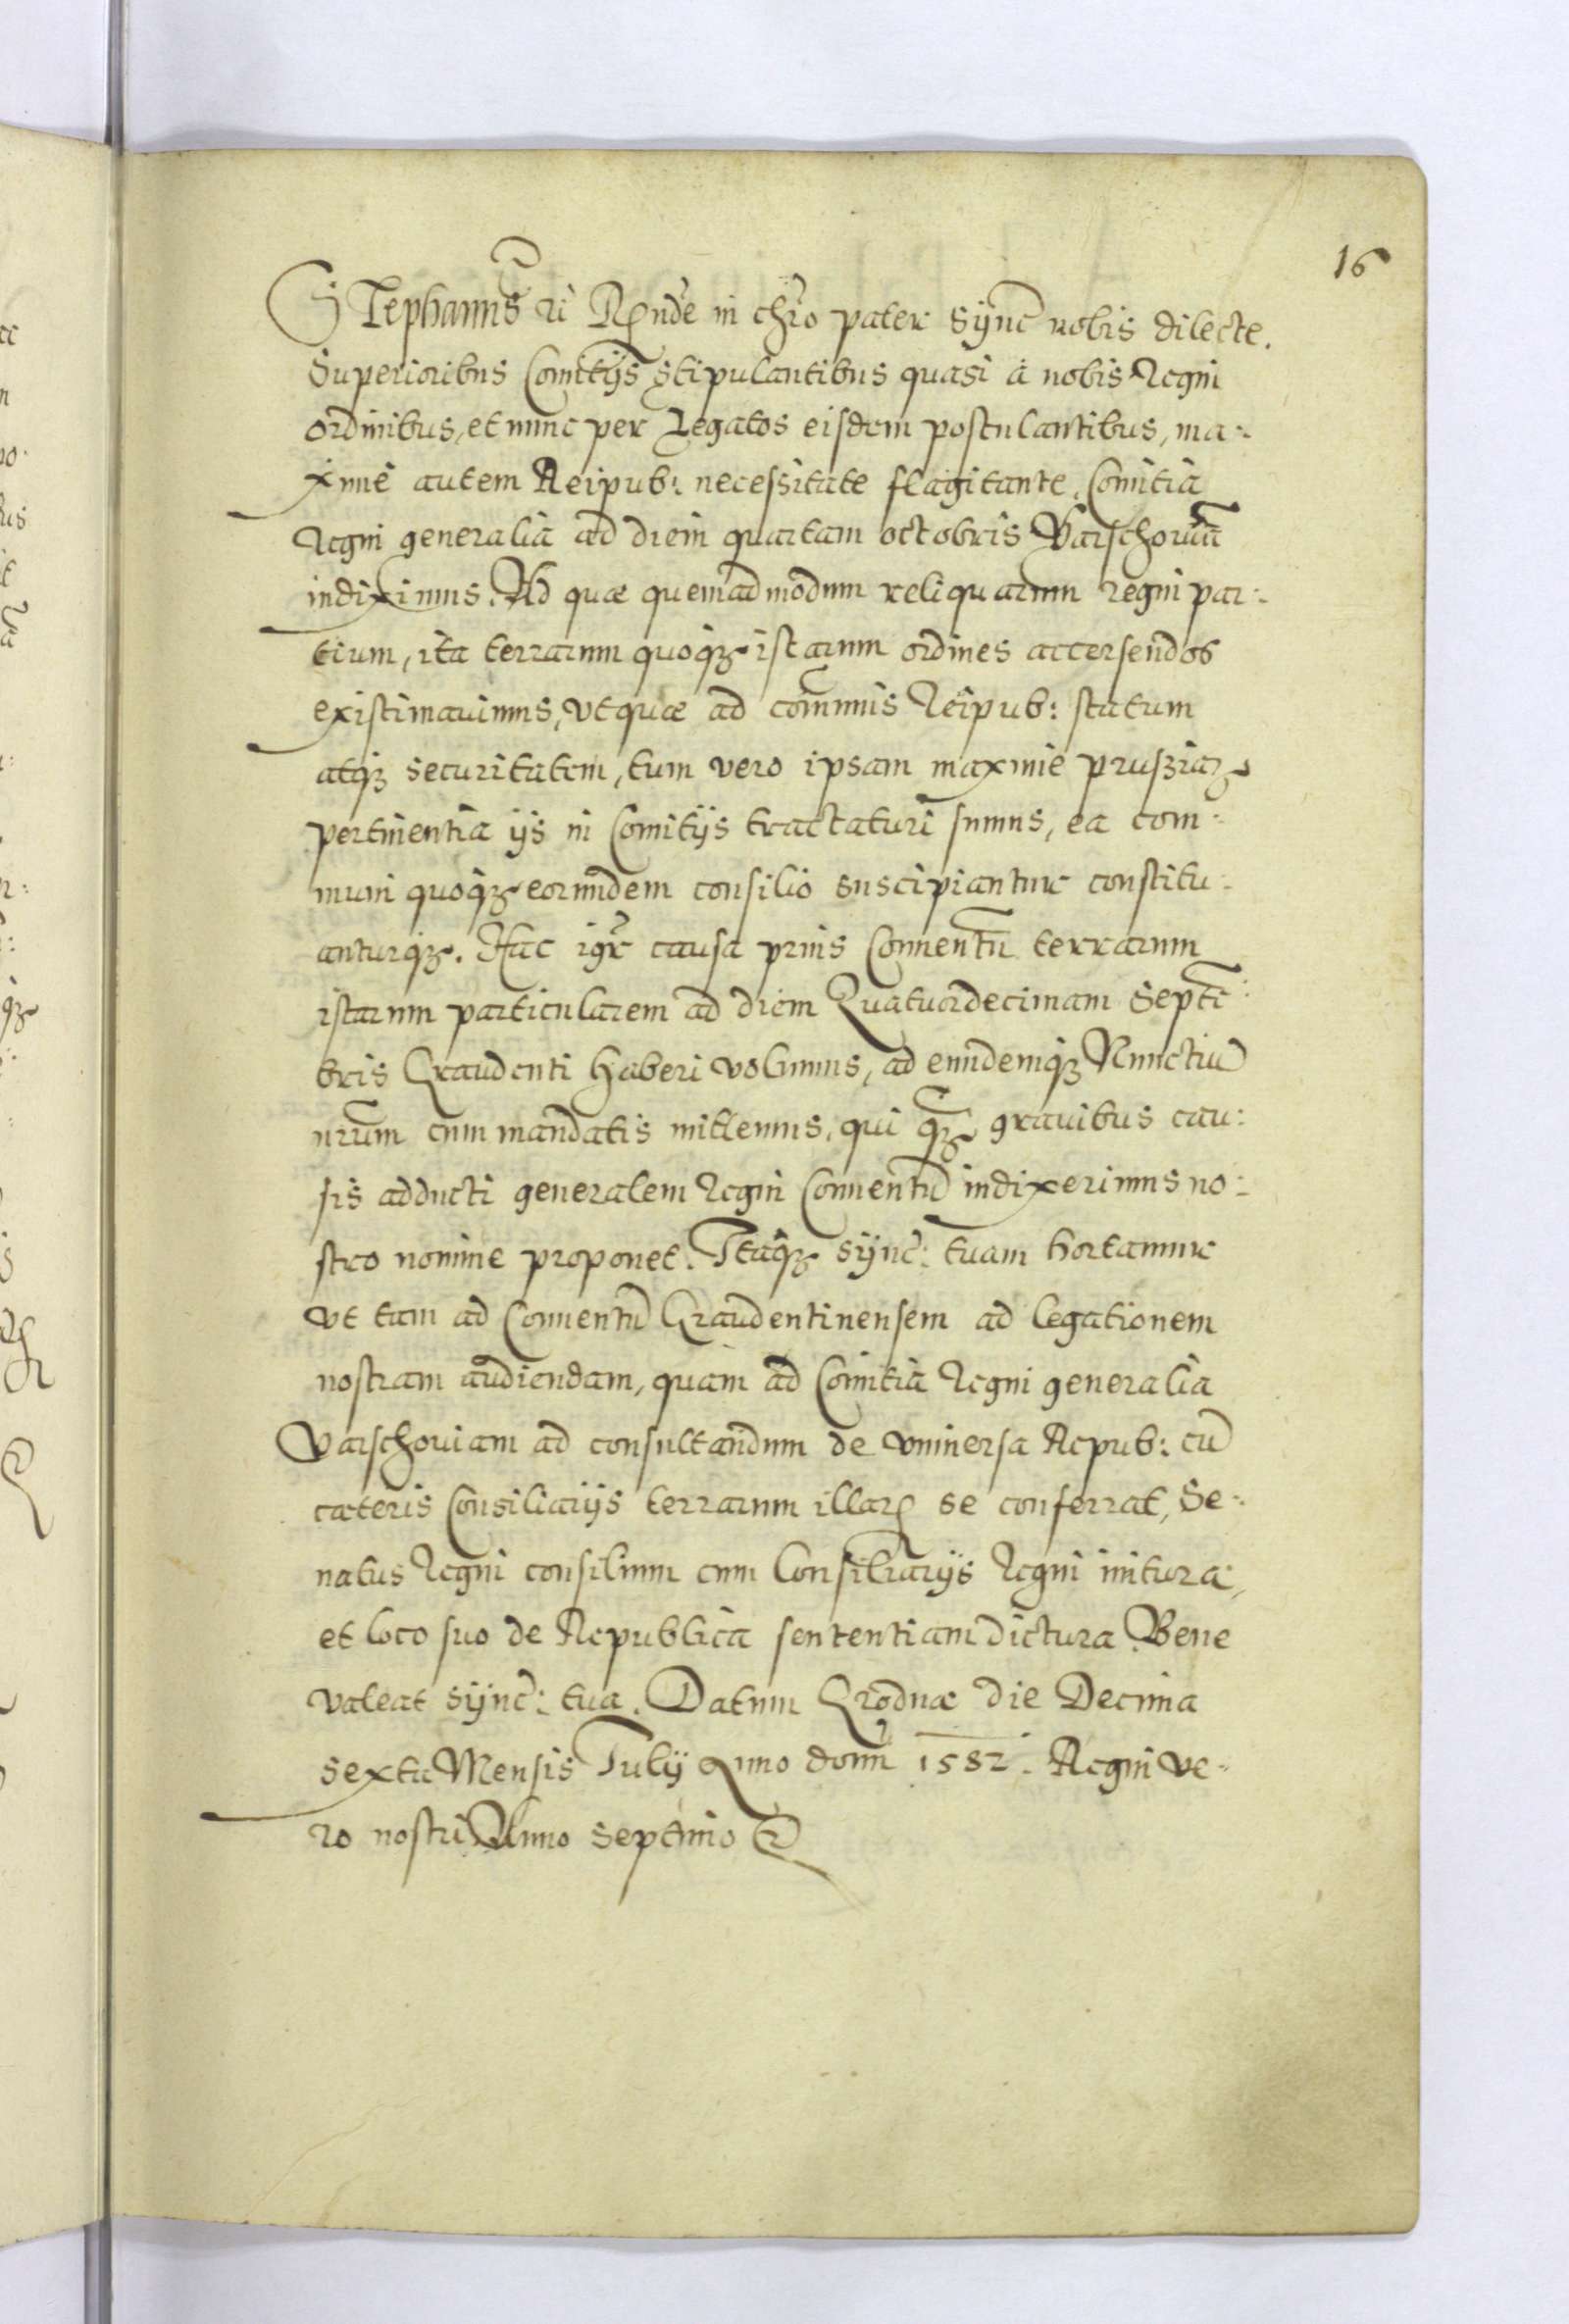 16
Stephanus etc Rnde in chro pater sync nobis dilecte.
Superioribus Comitijs stipulantibus quasi à nobis Regni
ordinibus, et nunc per Legatos eisdem postulantibus, ma-
xime autem Reipub: necessitate flagitante, Comitia
Regni generalia ad diem quartam octobris Varschouiã
indiximus. Ad quæ quemadmodum reliquarum regni par-
tium, ita terrarum quoqȝ istarum ordines accersendos
existimauimus, vt quæ ad com̃unis Reipub: statum
atqȝ securitatem, tum vero ipsam maxime prussiã
pertinentia ijs in Comitijs tractaturi sumus, ea com-
muni quoqȝ eorundem consilio suscipiantur constitu-
anturqȝ. Hac igr̃ causa prius Conuentũ terrarum
istarum particularem ad diem Quatuordecimam Septẽ-
bris Graudenti haberi volumus, ad eundemqȝ Nunctiũ
nrũm cum mandatis mittemus, qui qȝ̃ grauibus cau-
sis adducti generalem Regni Conuentũ indixerimus no-
stro nomine proponet. Itaqȝ sync: tuam hortamur
vt tam ad Conuentũ Graudentinensem ad legationem
nostram audiendam, quàm ad Comitia Regni generalia
Varschouiam ad consultandum de vniuersa Repub: cũ
cæteris Consiliarijs terrarum illarꝝ se conferrat, Se-
natus Regni consilium cum Consiliarijs Regni initura,
et loco suo de Republica sententiam dictura. Bene
valeat sync: tua. Datum Grodnæ die Decima
sexta Mensis Iulij Anno domi 1582. Regni ve-
ro nostri Anno septimo